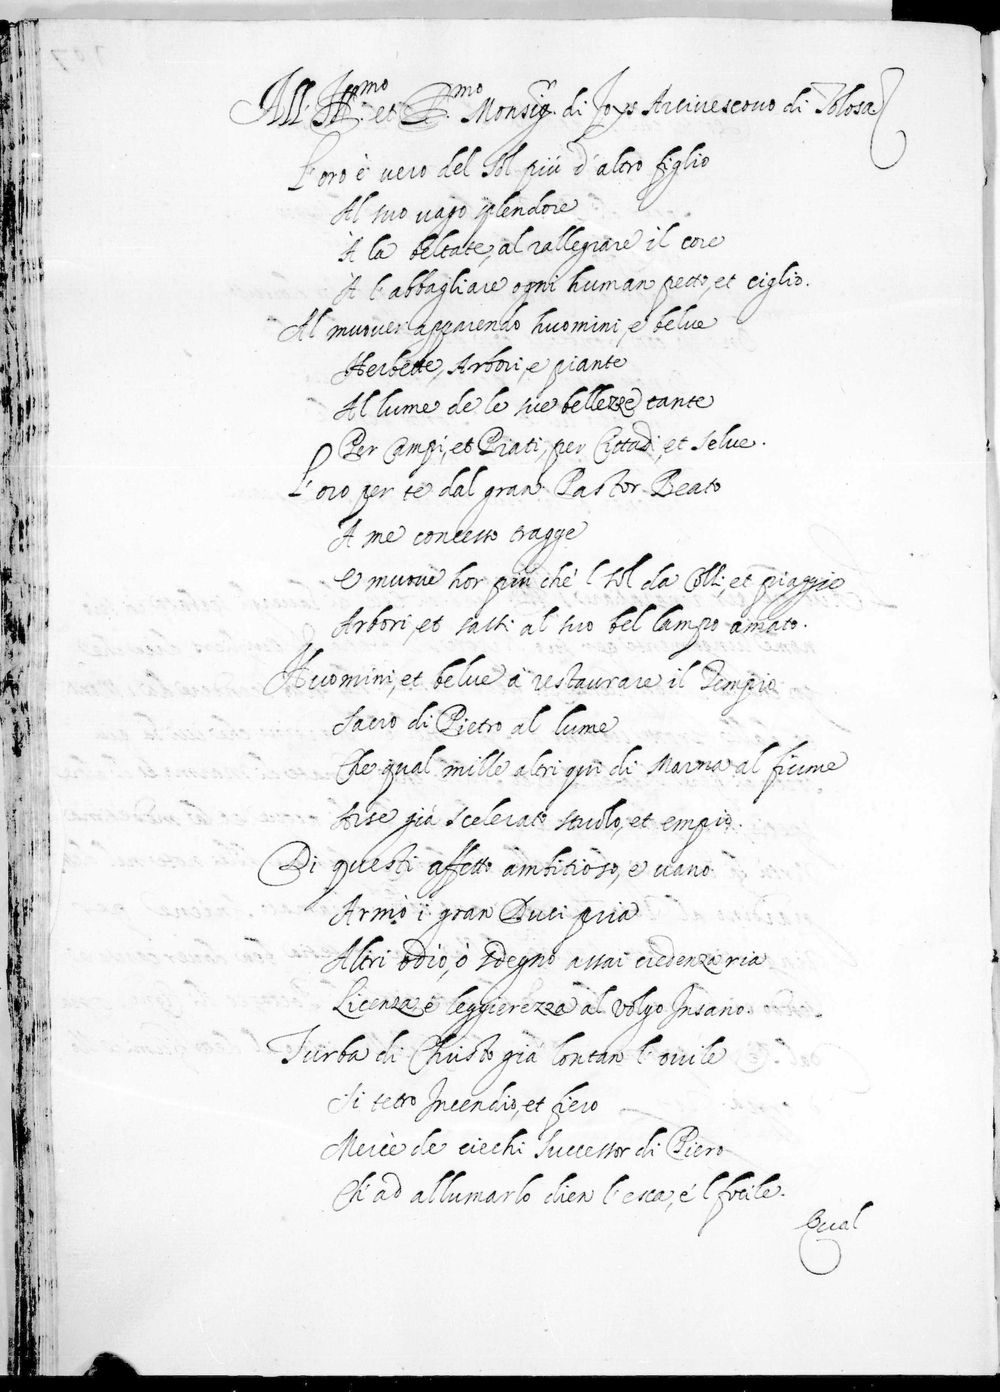 All' Ill.mo et R.mo Monsig.r di Joyos Arcivescovo di Tolosa
L'oro è vero del Sol più d'altro figlio
Al suo vago splendore
A la beltate, al rallegrare il core
A l'abbagliare ogni human petto, et ciglio.
Al muover apparendo huomini, e belve
Herbette, Arbori, e piante
Al lume de le sue bellezze tante
Per Campi, et Prati, per Cittadi, et selve.
L'oro per te dal gran Pastor Beato
A me concesso tragge
E muove hor più che 'l Sol da Colli, et piagge
Arbori, et sassi al suo bel lampo amato.
Huomini, et belve à restaurare il Tempio
Sacro di Pietro al lume
Che qual mille altri qui di Marna al fiume
Arse già scelerato stuolo, et empio.
Di questi affetto ambitioso, e vano
Armò i gran Duci pria
Altri odio, ò sdegno assai credenza ria
Licenza, e leggierezza al volgo Insano.
Turba di Christo già lontan l'ovile
Si tetro Incendio, et fiero
Mercè de ciechi Successor di Piero
Ch' ad allumarlo dien l'esca, e 'l focile.
Qual